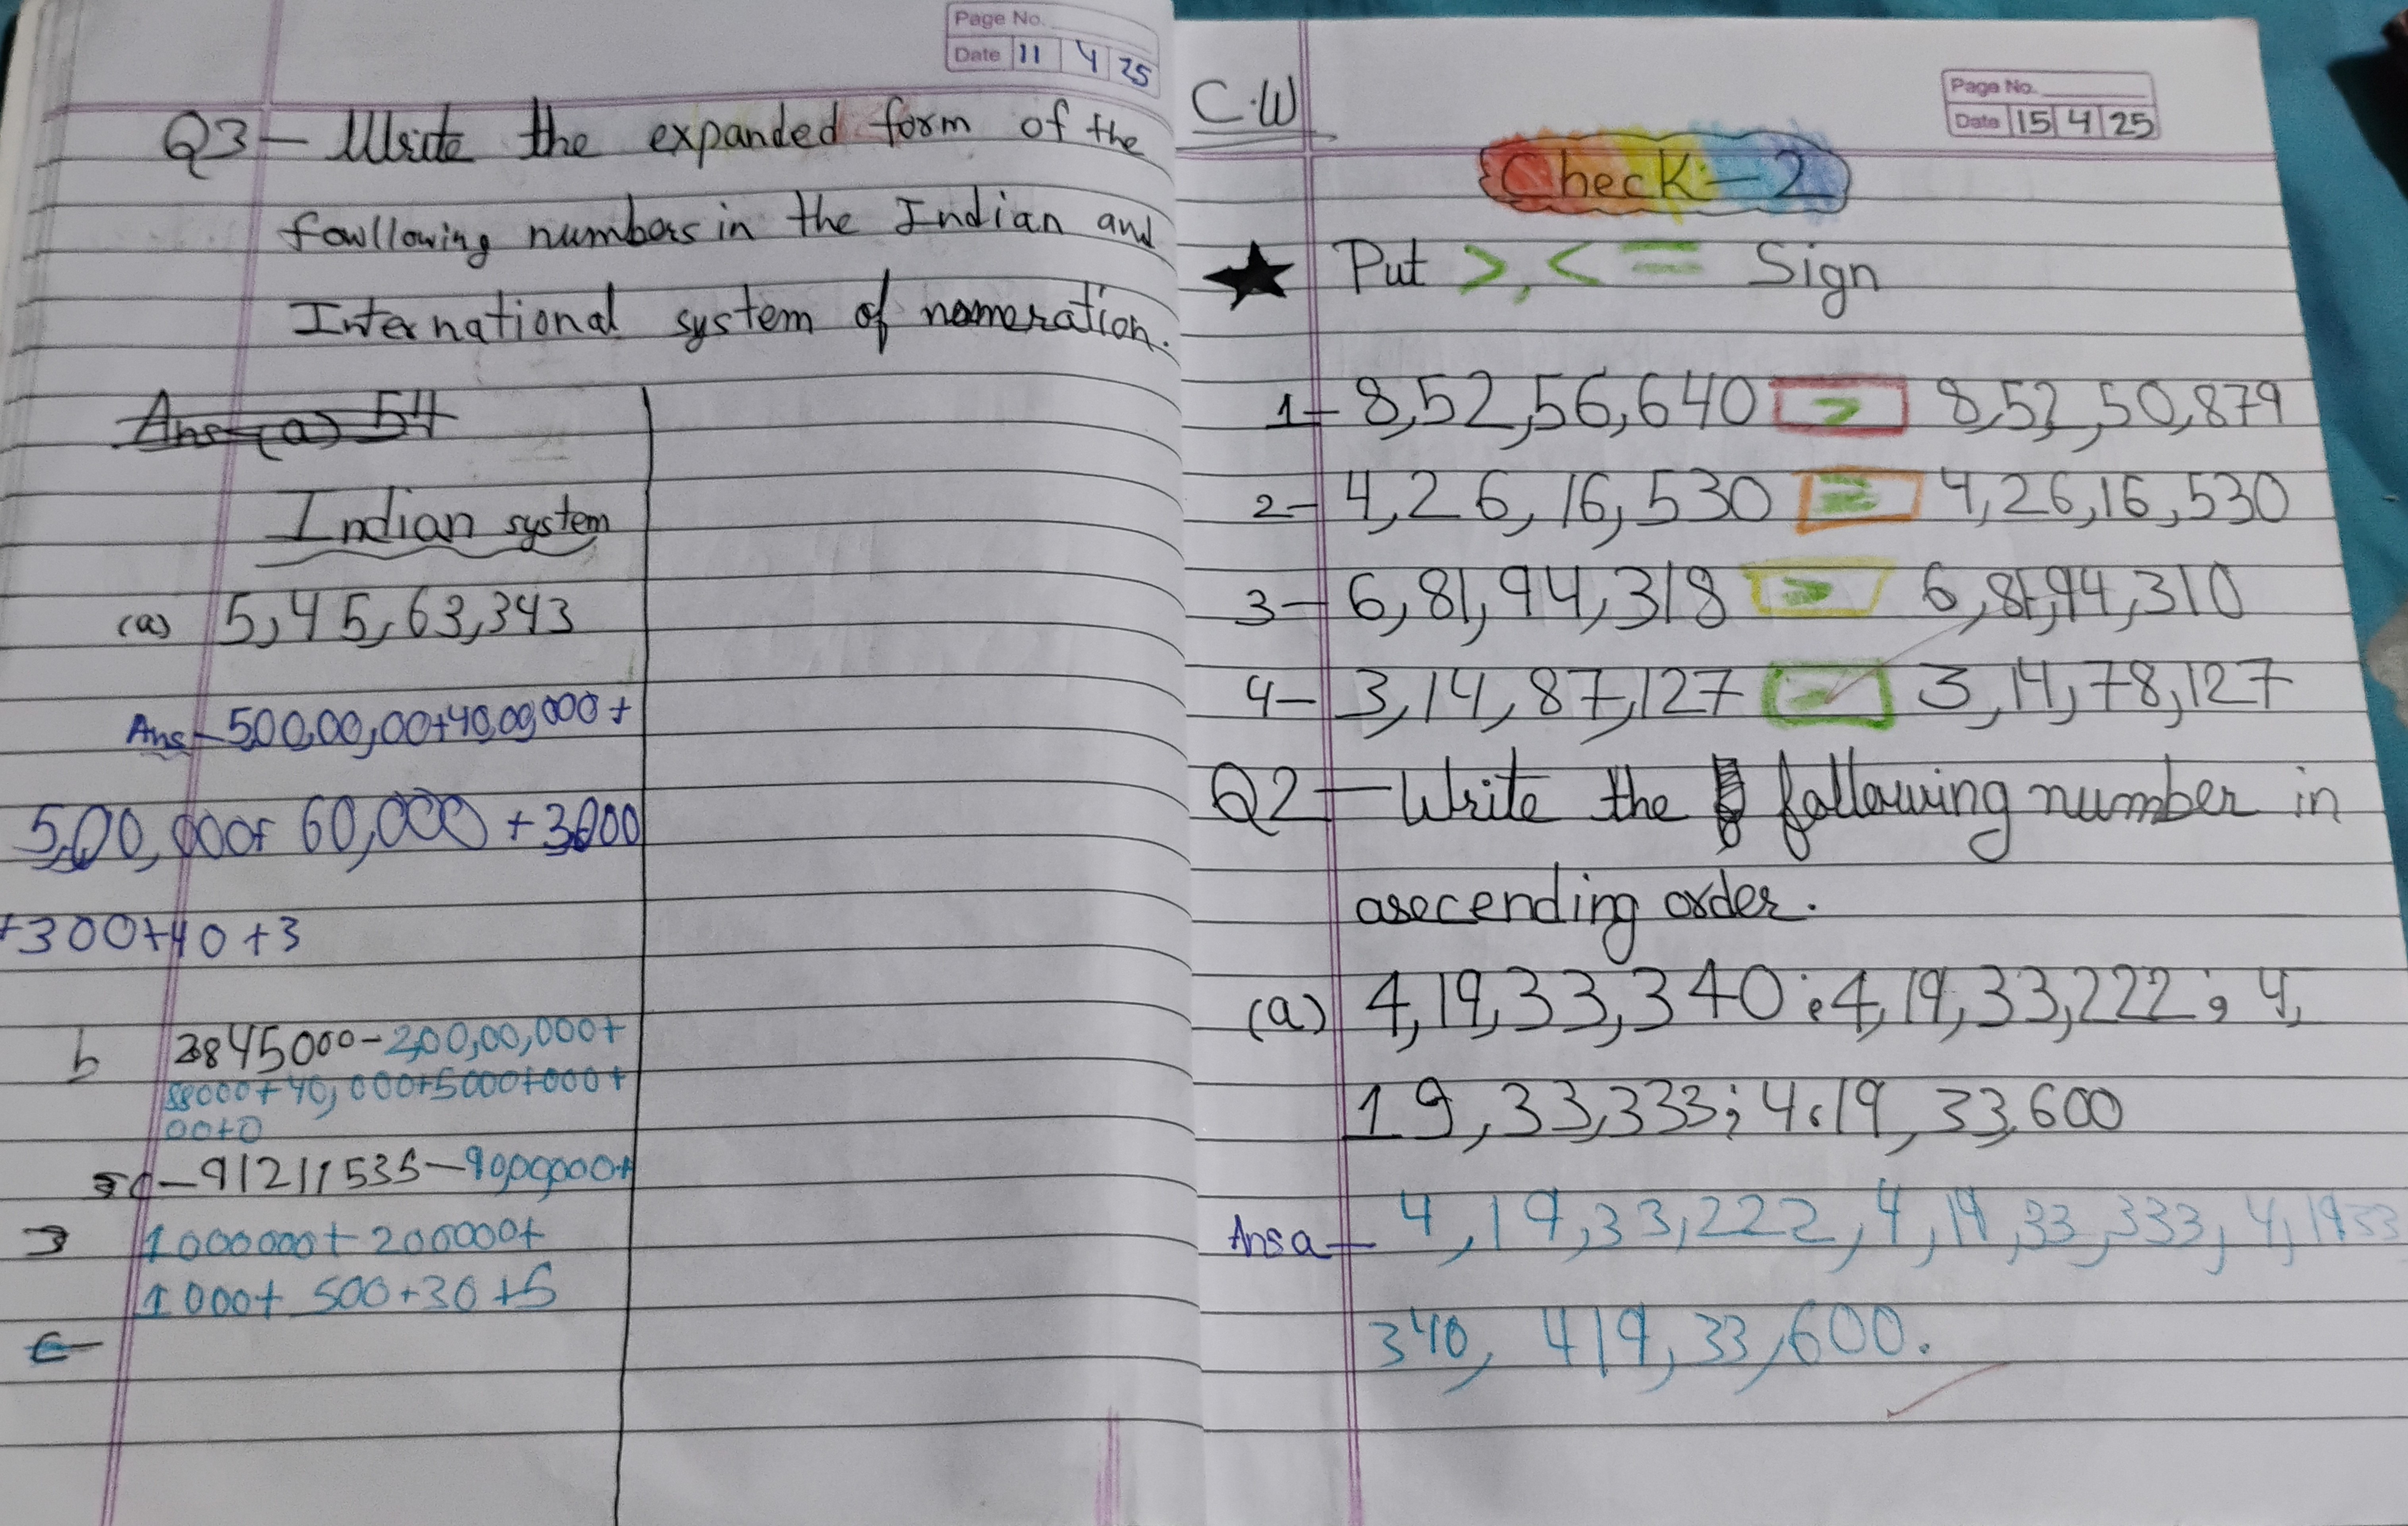 Page No.
Date 11 4 25
Q3 - Write the expanded form of the
fowllowing numbers in the Indian and
International system of nomeration.
Ans-(a) 54
Indian system
(a) 5,45,63,343
Ans - 500,00,00+40,00,000+
5,00,000+ 60,000 + 3000
+300+40+3
b 2845000-2,00,00,000+
88000+40,000+5000+000+
00+0
c-91211535-90,00,000+
1000000+200000+
1000+ 500+30+5
C.W
Page No.
Date 15 4 25
Check-2
★ Put >, < = Sign
1- 8,52,56,640 > 8,52,50,879
2- 4,26,16,530 = 4,26,16,530
3- 6,81,94,318 > 6,81,94,310
4- 3,14,87,127 3,14,78,127
Q2 - Write the following number in
asecending order.
(a) 4,19,33,340; 4,19,33,222; 4,
19,33,333; 4,19,33,600
Ans a- 4,19,33,222, 4,19,33,333, 4,1933
340, 419,33,600.